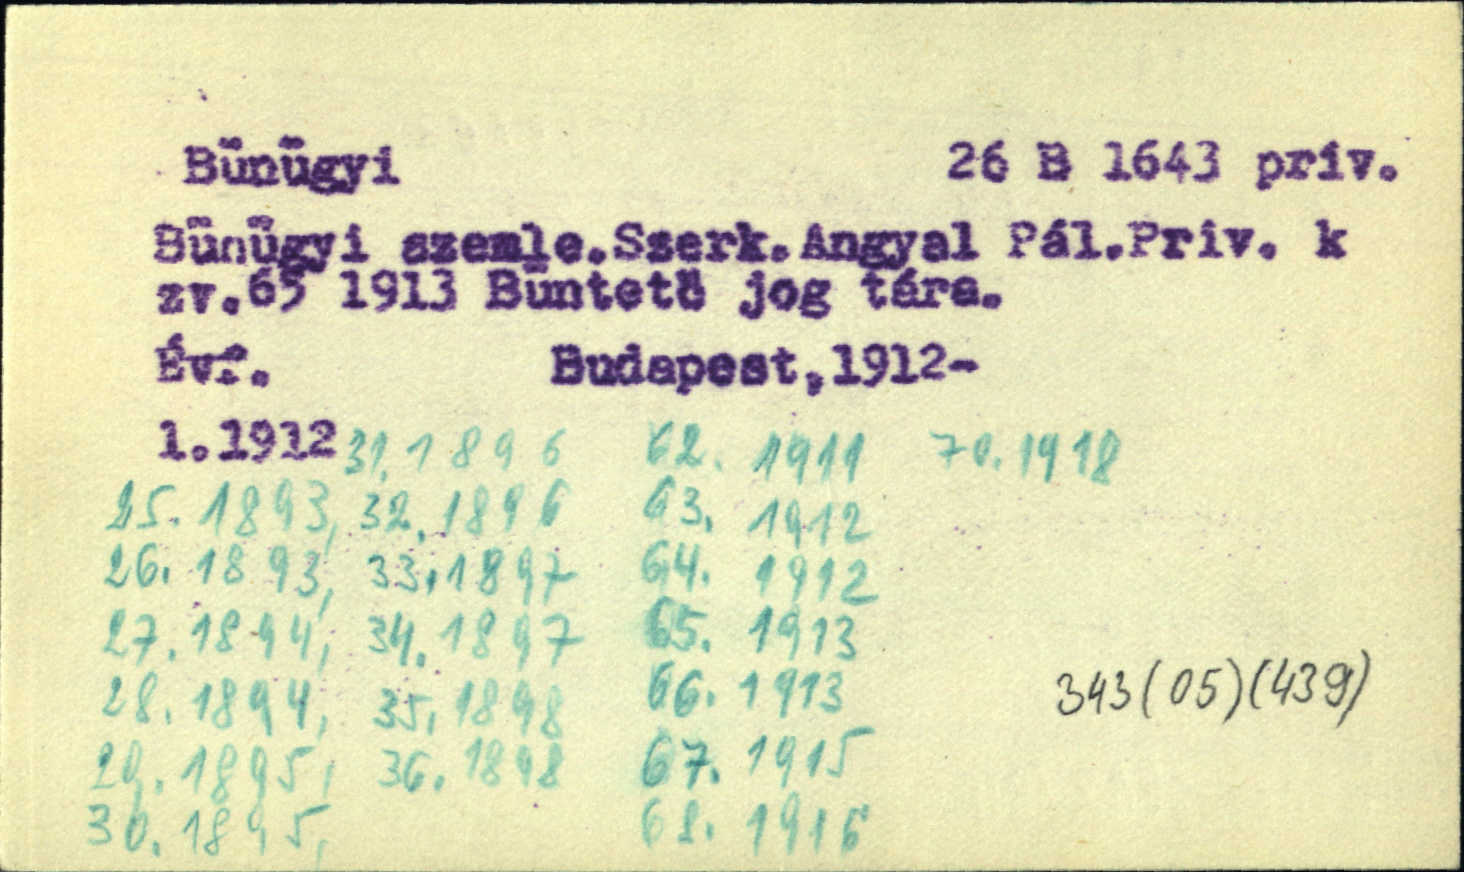 Bűnügyi 26 B 1643 priv.
Bűnügyi szemle.Szerk.Angyal Pál.Priv. k
zv.65 1913 Büntető jog tára.
Évf. Budapest,1912-
1.1912 31.1896 62. 1911 70.1918
25.1893, 32.1896 63. 1912
26.1893, 33.1897 64. 1912
27.1894, 34.1897 65. 1913
28.1894, 35.1898 66. 1913
29.1895, 36.1898 67. 1915
30.1895, 68. 1916
343(05)(439)